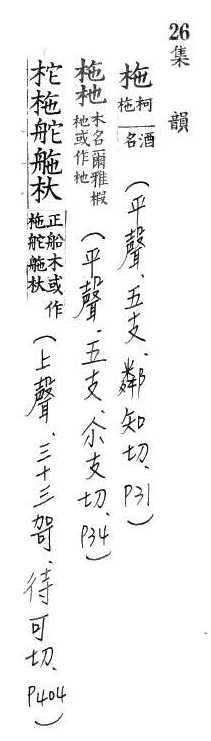 26 集韻
柂 柯柂酒名 (平聲、五支、鄰知切、P31)
柂杝 木名爾雅椵柂或作杝 (平聲、五支、余支切、P34)
柁柂舵舵杕 正船木或作柂舵舵杕 (上聲、三十三哿、待可切、P404)